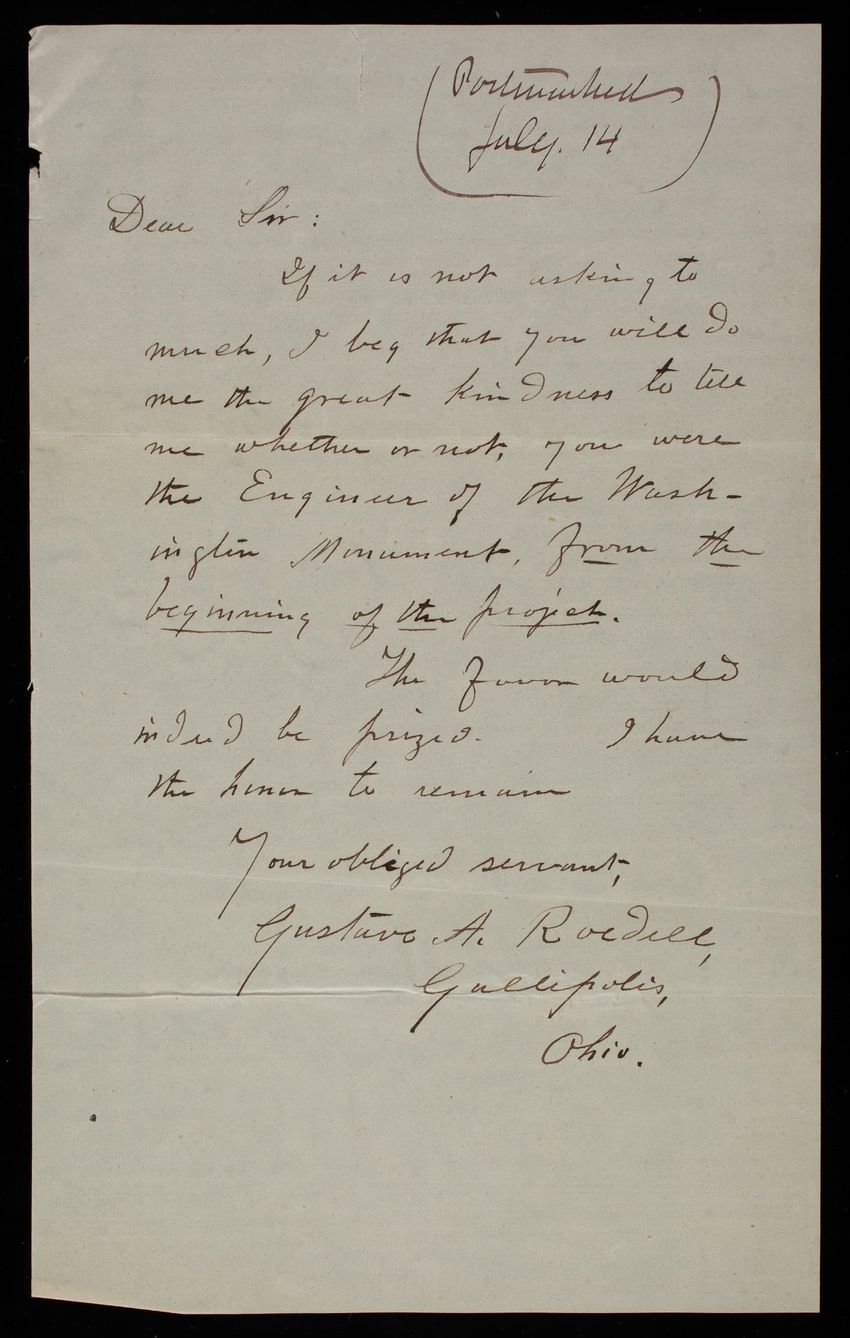 (Postmarked
July. 14)
Dear Sir:
If it is not asking to
much, I beg that you will do
me the great kindness to tell
me whether or not, you were
the Engineer of the Wash-
ington Monument, from the
beginning of the project.
The favor would
indeed be prized. I have
the honor to remain
Your obliged servant,
Gustave A. Roedell,
Gallipolis,
Ohio.